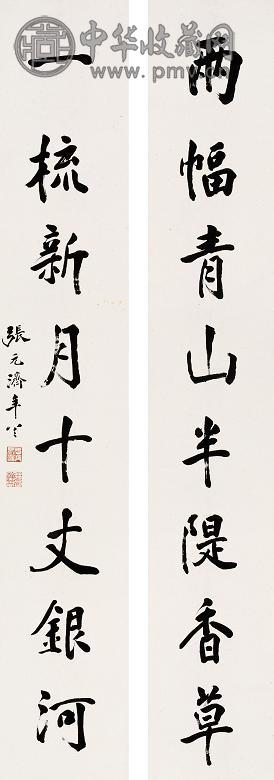 中华收藏网
www.pmv.cn
兩幅青山半隄香草
一梳新月十丈銀河
張元濟年八十